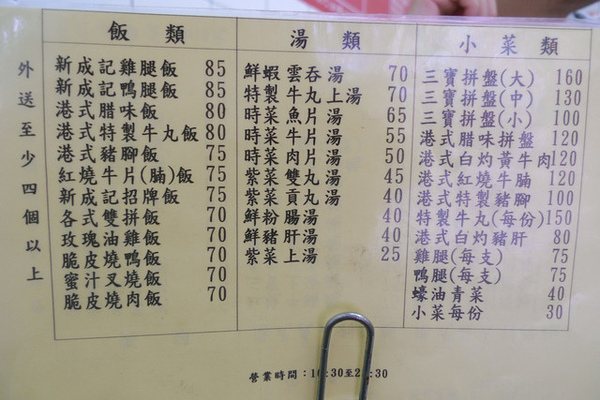 外送至少四個以上
飯類
新成記雞腿飯 85
新成記鴨腿飯 85
港式腊味飯 80
港式特製牛丸飯 80
港式豬腳飯 75
紅燒牛片(腩)飯 75
新成記招牌飯 75
各式雙拼飯 70
玫瑰油雞飯 70
脆皮燒鴨飯 70
蜜汁叉燒飯 70
脆皮燒肉飯 70
湯類
鮮蝦雲吞湯 70
特製牛丸上湯 70
時菜魚片湯 65
時菜牛片湯 55
時菜肉片湯 50
紫菜雙丸湯 45
紫菜貢丸湯 40
鮮粉腸湯 40
鮮豬肝湯 40
紫菜上湯 25
小菜類
三寶拼盤(大) 160
三寶拼盤(中) 130
三寶拼盤(小) 100
港式腊味拼盤 120
港式白灼黃牛肉 120
港式紅燒牛腩 120
港式特製豬腳 100
特製牛丸(每份) 150
港式白灼豬肝 80
雞腿(每支) 75
鴨腿(每支) 75
蠔油青菜 40
小菜每份 30
營業時間：